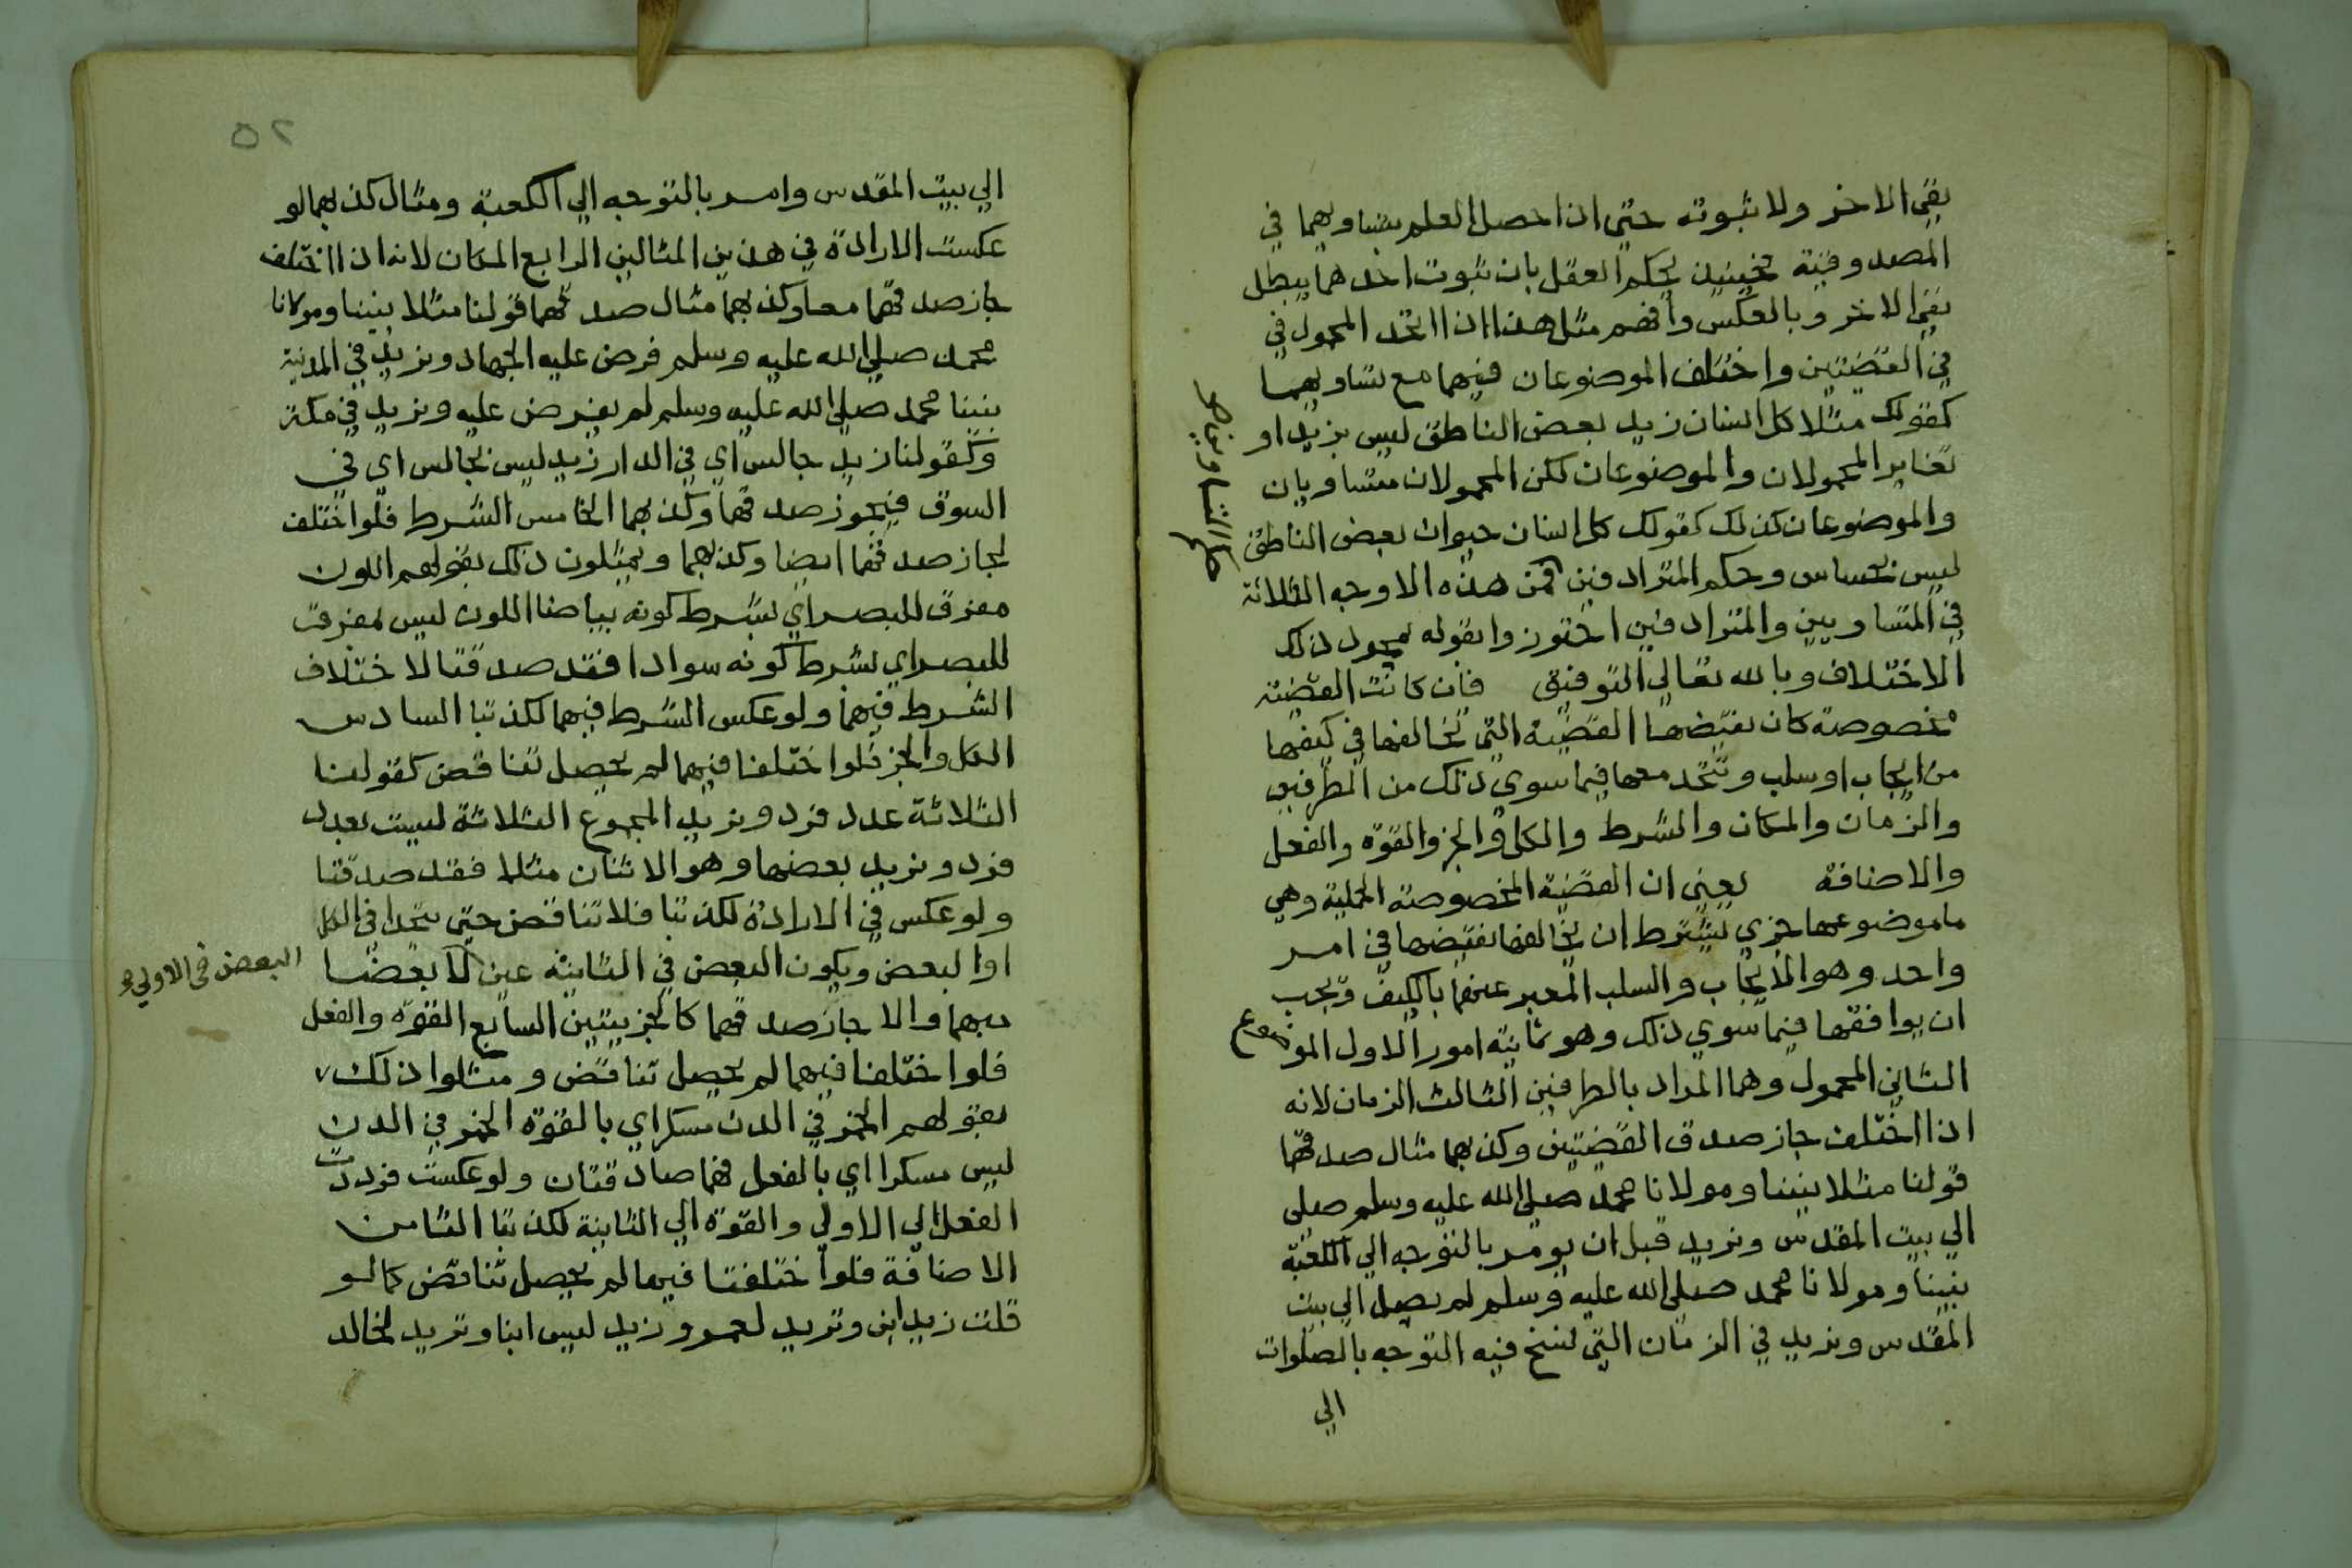 نفي الاخر ولا ثبوته حتي اذا حصل العلم بتساويهما في
المصدوقية فحينئذ يحكم العقل بان ثبوت احدهما يبطل
نفي الاخر وبالعكس وافهم مثل هذا اذا اتحد المحمول في
في القضيتين واختلف الموضوعان فيهما مع تساويهما
كقولك مثلا كل انسان زيد بعض الناطق ليس بزيد او
تغاير المحمولان والموضوعان لكن المحمولان متساويان
والموضوعان كذلك كقولك كل انسان حيوان بعض الناطق
ليس بحساس وحكم المترادفين فمن هذه الاوجه الثلاثة
حكم المتساويين
في المتساويين والمترادفين احترزوا بقوله
الاختلاف وبالله تعالي التوفيق فان كانت القضية
مخصوصة كان نقيضها القضية التي تخالفها في كيفها
من ايجاب او سلب وتتحد معها فيما سوي ذلك من الطرفين
والزمان والمكان والشرط والكل والجز والقوة والفعل
والاضافة يعني ان القضية المخصوصة الحملية وهي
ما موضوعها جزي يشترط ان يخالفها نقيضها في امر
واحد وهو الايجاب والسلب المعبر عنهما بالكيف ويجب
ان يوافقها فيما سوي ذلك وهو ثمانية امور الاول الموضوع
الثاني المحمول وهما المراد بالطرفين الثالث الزمان لانه
اذا اختلف جاز صدق القضيتين وكذبهما مثال صدقهما
قولنا مثلا نبينا ومولانا محمد صلي الله عليه وسلم صلي
الي بيت المقدس ونريد قبل ان يومر بالتوجه الي الكعبة
نبينا ومولانا محمد صلي الله عليه وسلم لم يصل الي بيت
المقدس ونريد في الزمان التي نسخ فيه التوجه بالصلوات
الي
٥٢
الي بيت المقدس وامر بالتوجه الي الكعبة ومثال كذبهما لو
عكست الارادة في هذين المثالين الرابع المكان لانه اذا اختلف
جاز صدقهما معا وكذبهما مثال صدقهما قولنا مثلا نبينا ومولانا
محمد صلي الله عليه وسلم فرض عليه الجهاد ونريد في المدنية
نبينا محمد صلي الله عليه وسلم لم يفرض عليه ونريد في مكة
وكقولنا زيد جالس اي في الدار زيد ليس بجالس اي في
السوق فيجوز صدقهما وكذبهما الخامس الشرط فلو اختلف
لجاز صدقهما ايضا وكذبهما ويمثلون ذلك بقولهم اللون
مفرق للبصر اي بشرط كونه بياضا اللون ليس بمفرق
للبصر اي بشرط كونه سوادا فقد صدقتا لاختلاف
الشرط فيهما ولو عكس الشرط فيهما لكذبتا السادس
الكل والجز فلو اختلفا فيهما لم يحصل تناقض كقولنا
الثلاثة عدد فرد ونريد المجموع الثلاثة ليست بعدد
فرد ونريد بعضها وهو الاثنان مثلا فقد صدقتا
ولو عكس في الارادة لكذبتا فلا تناقض حتي يتحدا في الكل
او البعض ويكون البعض في الثانية عين
البعض في الاولي
والا جاز صدقهما كالجزييتين السابع القوة والفعل
فلو اختلفا فيهما لم يحصل تناقض ومثلوا ذلك
بقولهم الخمر في الدن مسكر اي بالقوة الخمر في الدن
ليس مسكرا اي بالفعل فهما صادقتان ولو عكست فرددت
الفعل الي الاولي والقوة الي الثانية لكذبتا الثامن
الاضافة فلو اختلفتا فيها لم يحصل تناقض كما لو
قلت زيد ابن وتريد لعمرو زيد ليس ابنا وتريد لخالد